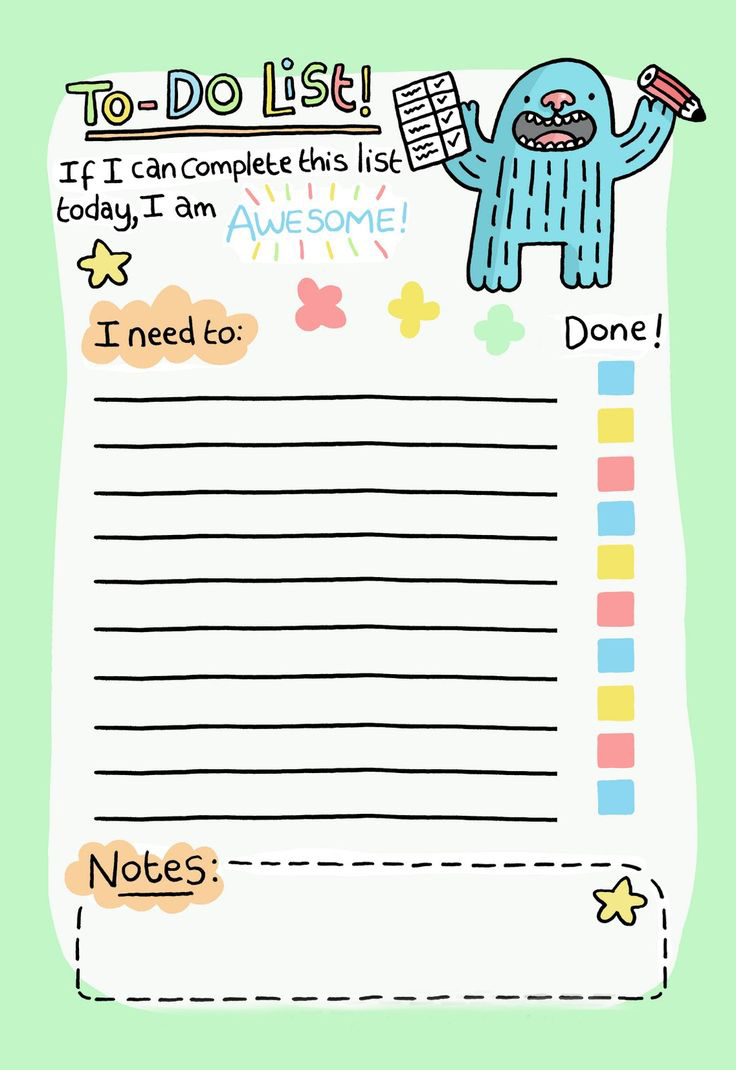 To-Do List!
If I can complete this list
today, I am AWESOME!
I need to:
Done!
Notes: